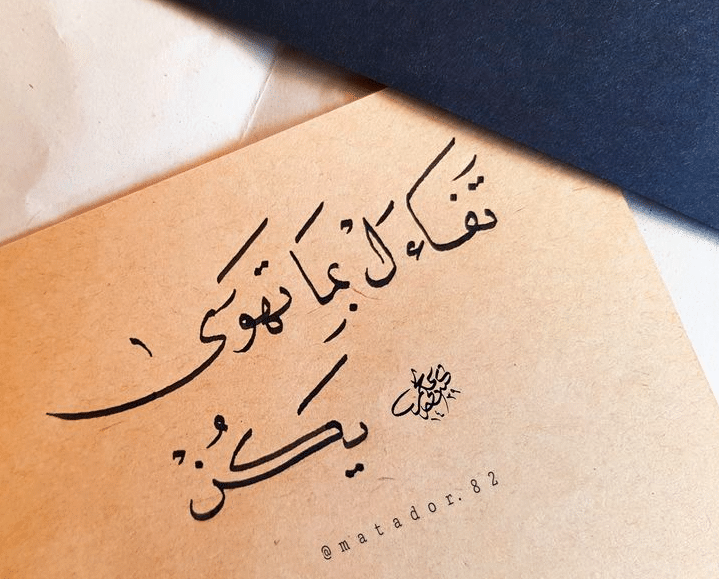 تفاءلْ بِمَا تهوى
يكُنْ
@matador.82